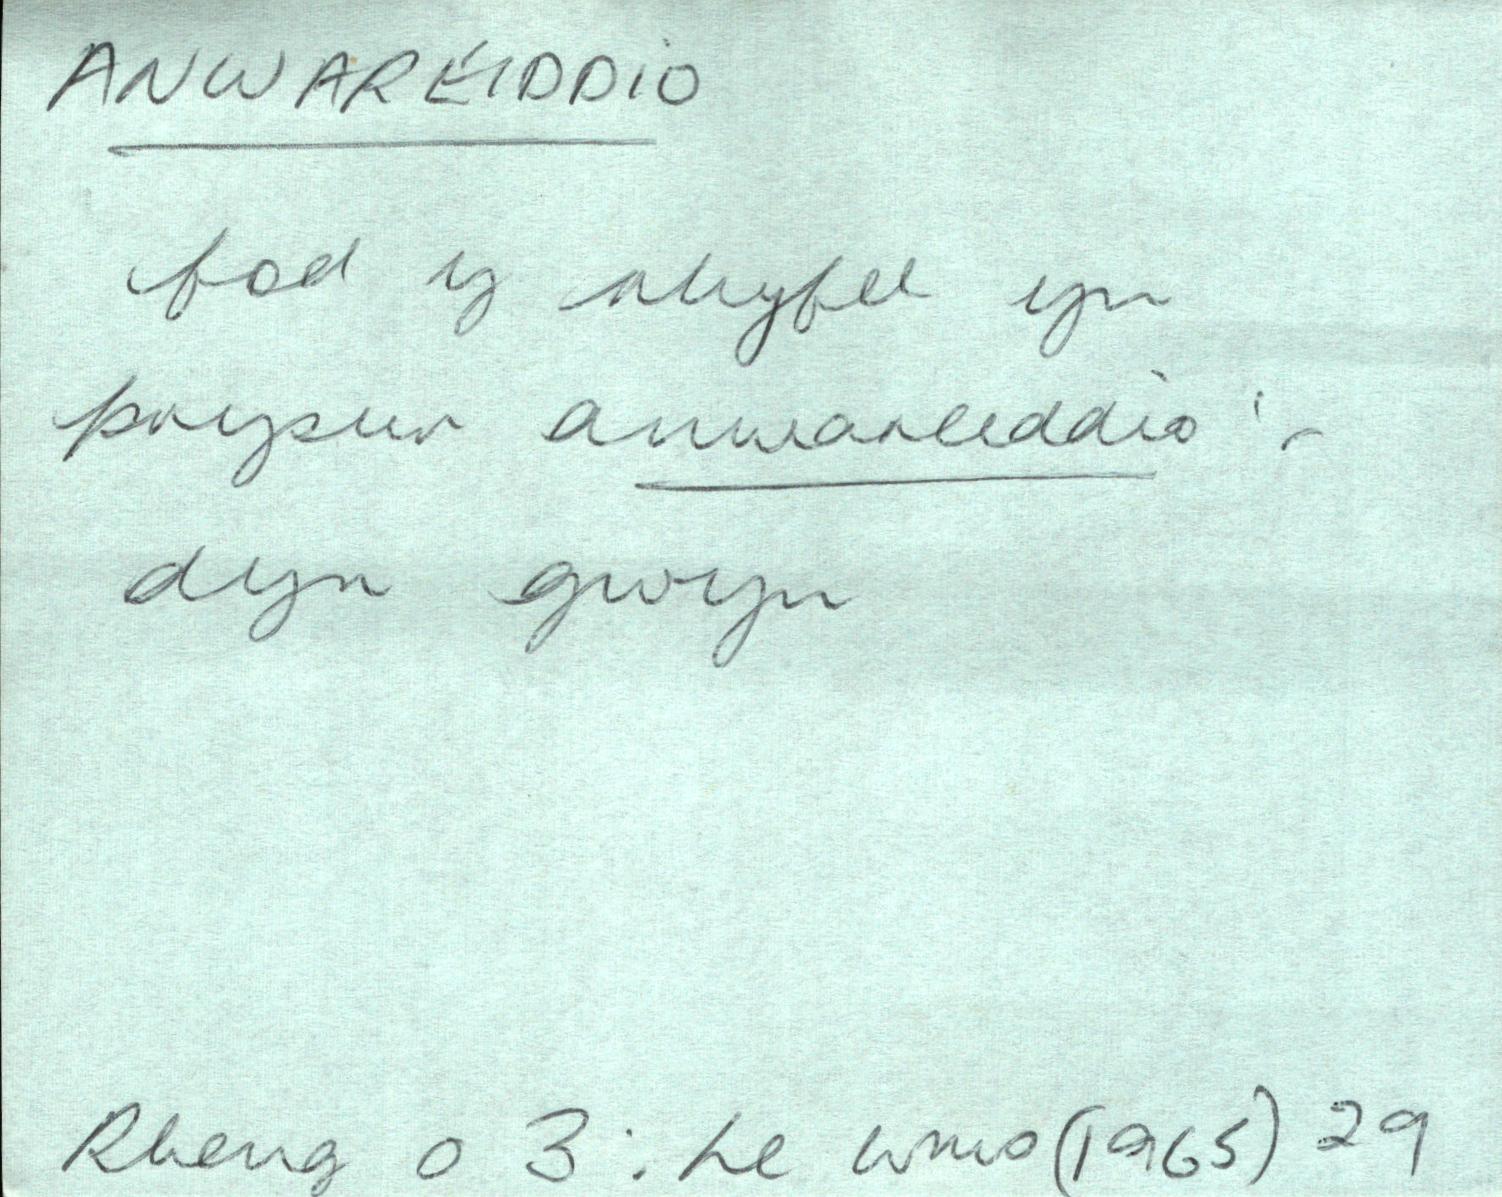 ANWAREIDDIO
fod y rhyfel yn
prysur anwareiddio'r
dyn gwyn
Rheng o 3: (1965) 29